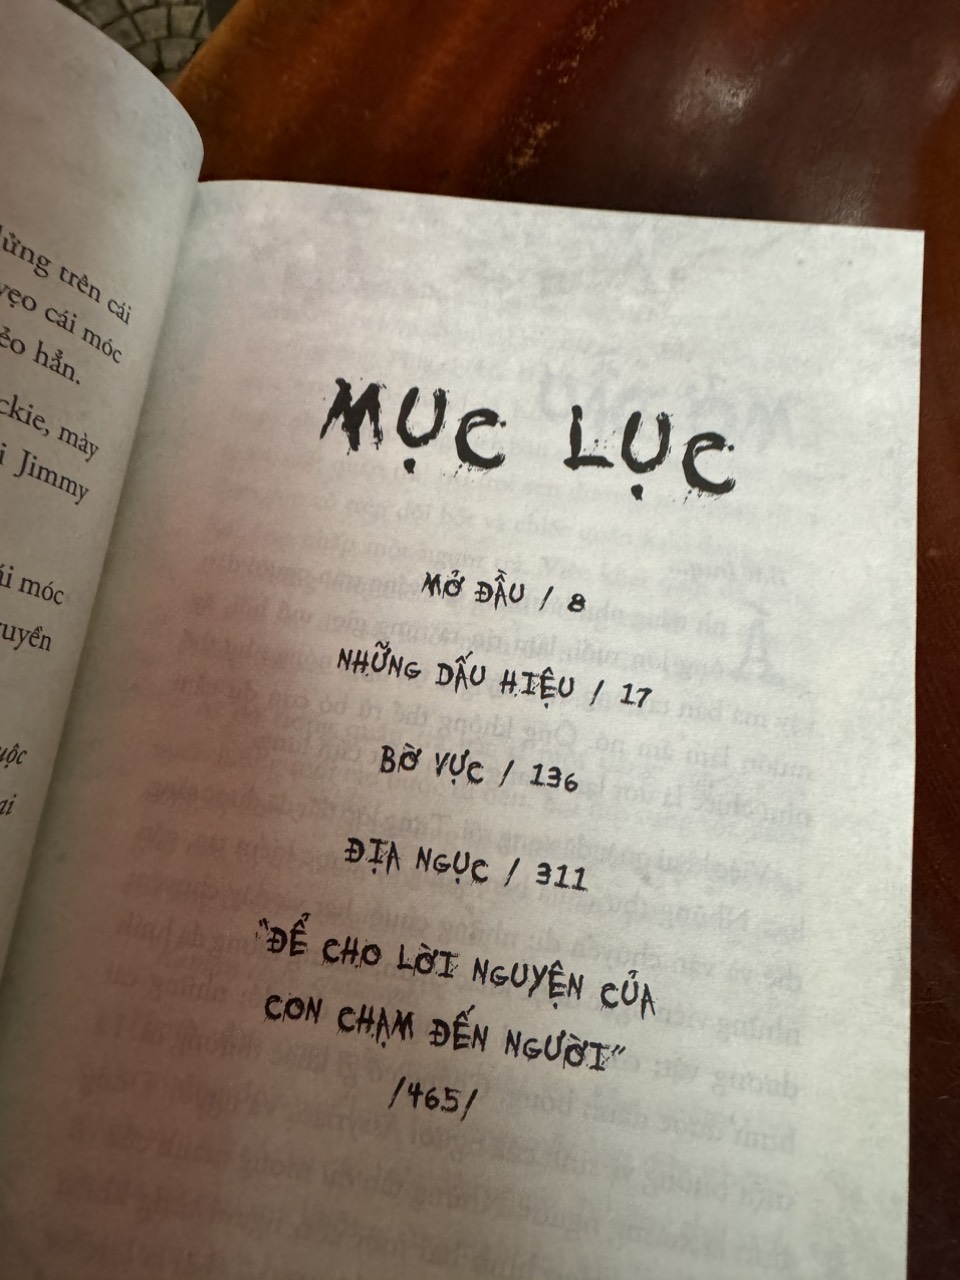 lửng trên cái
vẹo cái móc
ẻo hẳn.
ckie, mày
i Jimmy
ái móc
ruyền
uộc
ai
MỤC LỤC
MỞ ĐẦU / 8
NHỮNG DẤU HIỆU / 17
BỜ VỰC / 136
ĐỊA NGỤC / 311
"ĐỂ CHO LỜI NGUYỆN CỦA
CON CHẠM ĐẾN NGƯỜI"
/465/